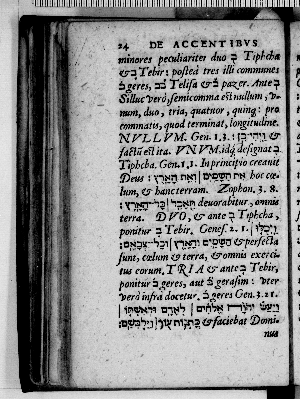 24 DE ACCENTIBVS
minores peculiariter duo בֿ Tiphcha
& בֿ Tebir: posteà tres illi communes
geres, בֿבֿ Telisa & בֿ pazer. Ante
Silluc verò, semicomma est nullum, v-
num, duo, tria, quatuor, quinq; pro
commatis, quod terminat, longitudine.
NVLLVM. Gen. 1. 3. : וַיְהִי־כֵן &
factũ est ita. VNVM. idq́; designat
Tiphcha. Gen. 1. 1. In principio creauit
Deus : אֵת הַשָּׁמַיִם וְאֵת הָאָרֶץ hoc cœ-
lum, & hanc terram. Zophon. 3. 8.
תֵּאָכֵל כָּל־הָאָרֶץ: deuorabitur, omnis
terra. DVO, & ante Tiphcha,
ponitur Tebir. Genes. 2. 1. וַיְכֻלּוּ
הַשָּׁמַיִם וְהָאָרֶץ וְכָל־צְבָאָם: & perfecta
sunt, cœlum & terra, & omnis exerci-
tus eorum. TRIA & ante Tebir,
ponitur geres, aut gerasim: vter
verò infrà docetur. geres Gen. 3. 21.
וַיַּעַשׂ יְהוָֹה אֱלֹהִים לְאָדָם וּלְאִשְׁתּוֹ
כָּתְנוֹת עוֹר וַיַּלְבִּשֵׁם: & faciebat Domi-
nus